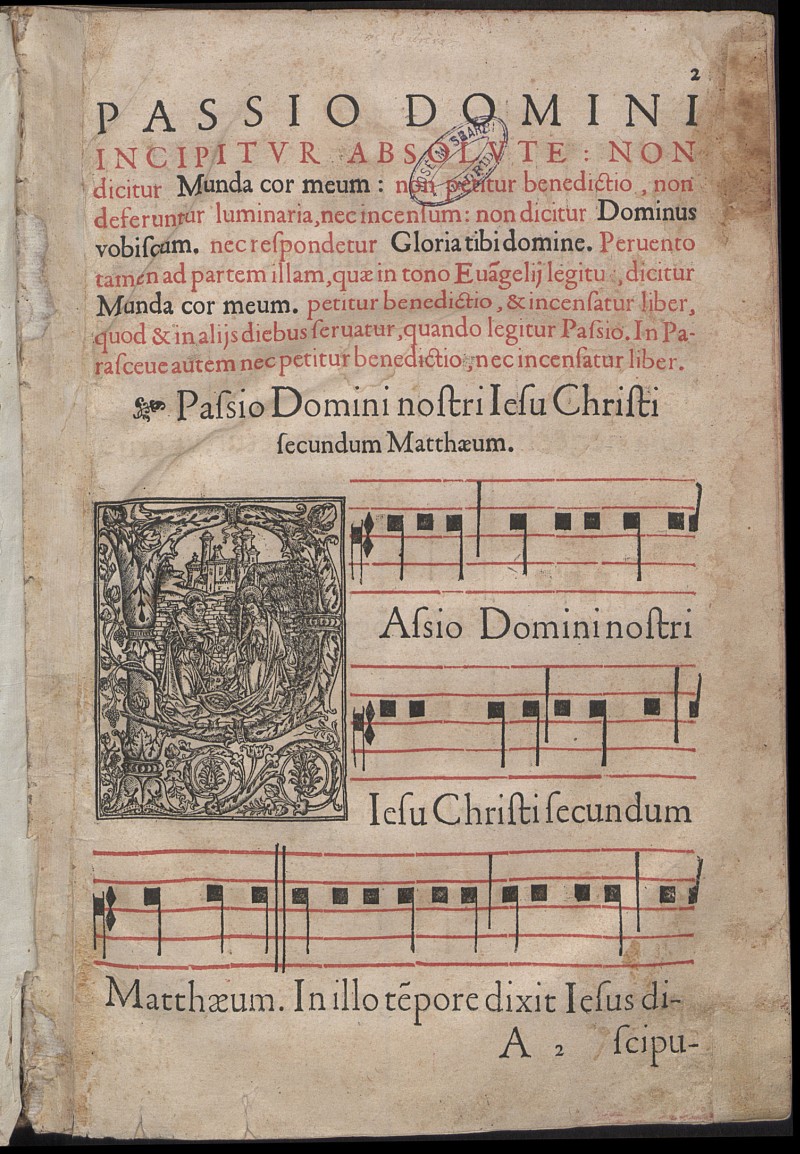 2
PASSIO DOMINI
INCIPITVR ABSOLVTE: NON
dicitur Munda cor meum: non petitur benedictio, non
deferuntur luminaria, nec incenſum: non dicitur Dominus
vobiſcum. nec reſpondetur Gloria tibi domine. Peruento
tamen ad partem illam, quæ in tono Euãgelij legitu, dicitur
Munda cor meum. petitur benedictio, & incenſatur liber,
quod & in alijs diebus ſeruatur, quando legitur Paſsio. In Pa-
raſceue autem nec petitur benedictio, nec incenſatur liber.
Paſsio Domini noſtri Ieſu Chriſti
ſecundum Matthæum.
P
Aſsio Domini noſtri
Ieſu Chriſti ſecundum
Matthæum. In illo tẽpore dixit Ieſus di-
A 2 ſcipu-